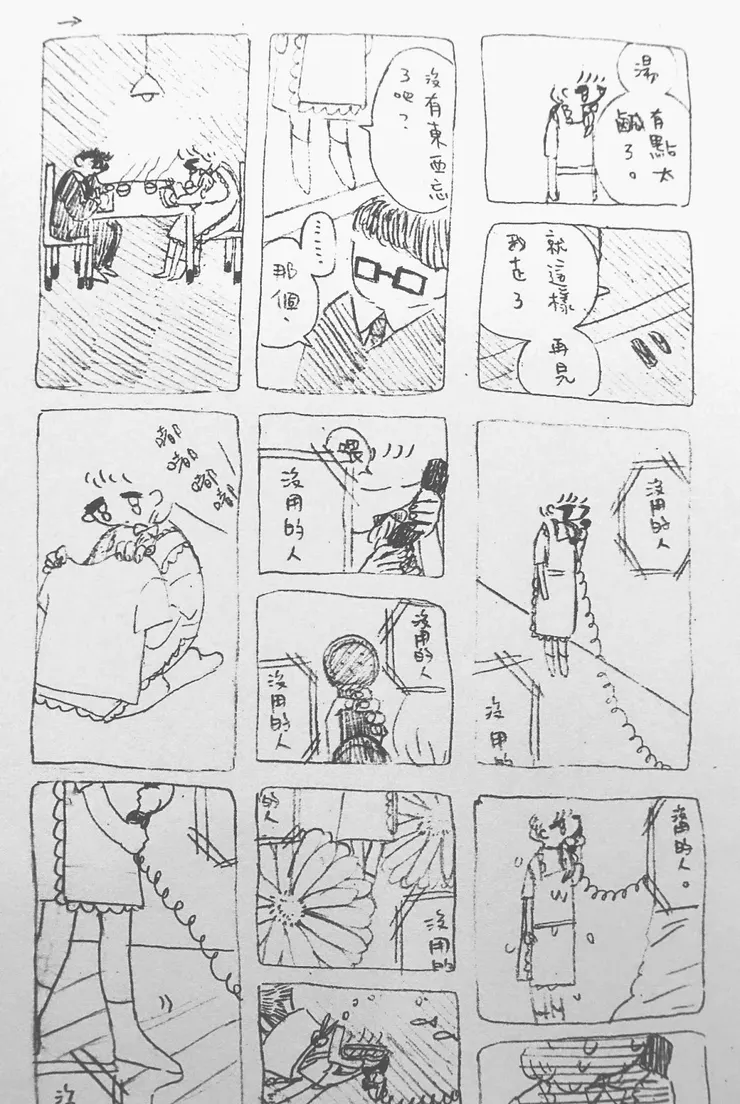 沒有東西忘
了吧？
⋯⋯
那個、
湯
有點太
鹹了。
就這樣
我走了
再見
嘟
嘟
嘟
嘟
喂
沒用的人
沒用的人
沒用的人
沒用的人
沒用的
沒
的人
沒用的
沒用的人。